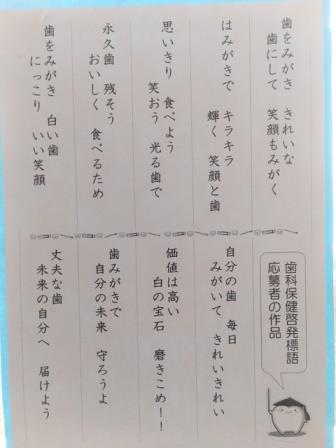 歯をみがき きれいな
歯にして 笑顔もみがく
はみがきで キラキラ
輝く 笑顔と歯
思いきり 食べよう
笑おう 光る歯で
永久歯 残そう
おいしく 食べるため
歯をみがき 白い歯
にっこり いい笑顔
歯科保健啓発標語
応募者の作品
自分の歯 毎日
みがいて きれいきれい
価値は高い
白の宝石 磨きこめ!!
歯みがきで
自分の未来 守ろうよ
丈夫な歯
未来の自分へ 届けよう